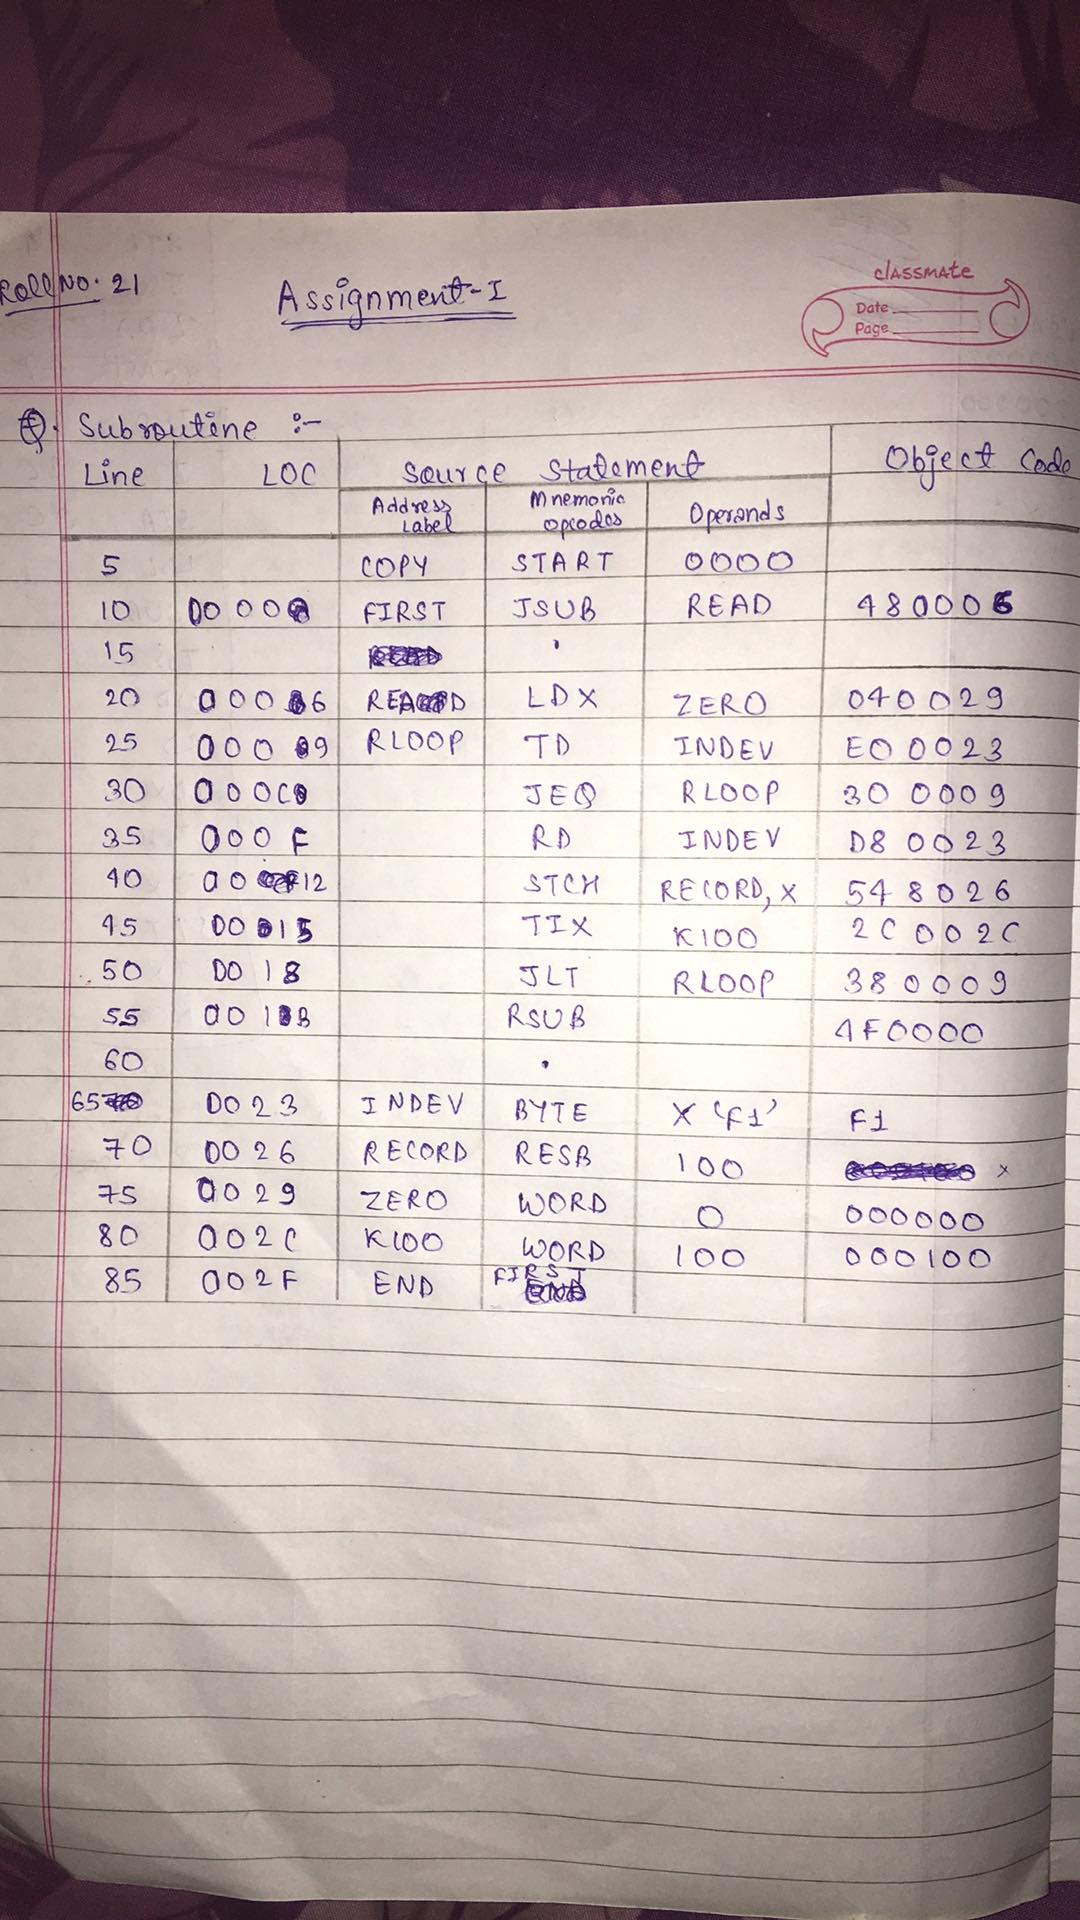 Roll No. 21
Assignment-I
classmate
Date
Page
Q. Subroutine :-
Line LOC Source Statement Object Code
Address Label Mnemonic opcodes Operands
5 COPY START 0000
10 0000 FIRST JSUB READ 480006
15 .
20 0006 READ LDX ZERO 040029
25 0009 RLOOP TD INDEV E00023
30 000C JEQ RLOOP 300009
35 000F RD INDEV D80023
40 0012 STCH RECORD, X 548026
45 0015 TIX K100 2C002C
50 0018 JLT RLOOP 380009
55 001B RSUB 4F0000
60 .
65 0023 INDEV BYTE X 'F1' F1
70 0026 RECORD RESB 100 x
75 0029 ZERO WORD 0 000000
80 002C K100 WORD 100 000100
85 002F END FIRST